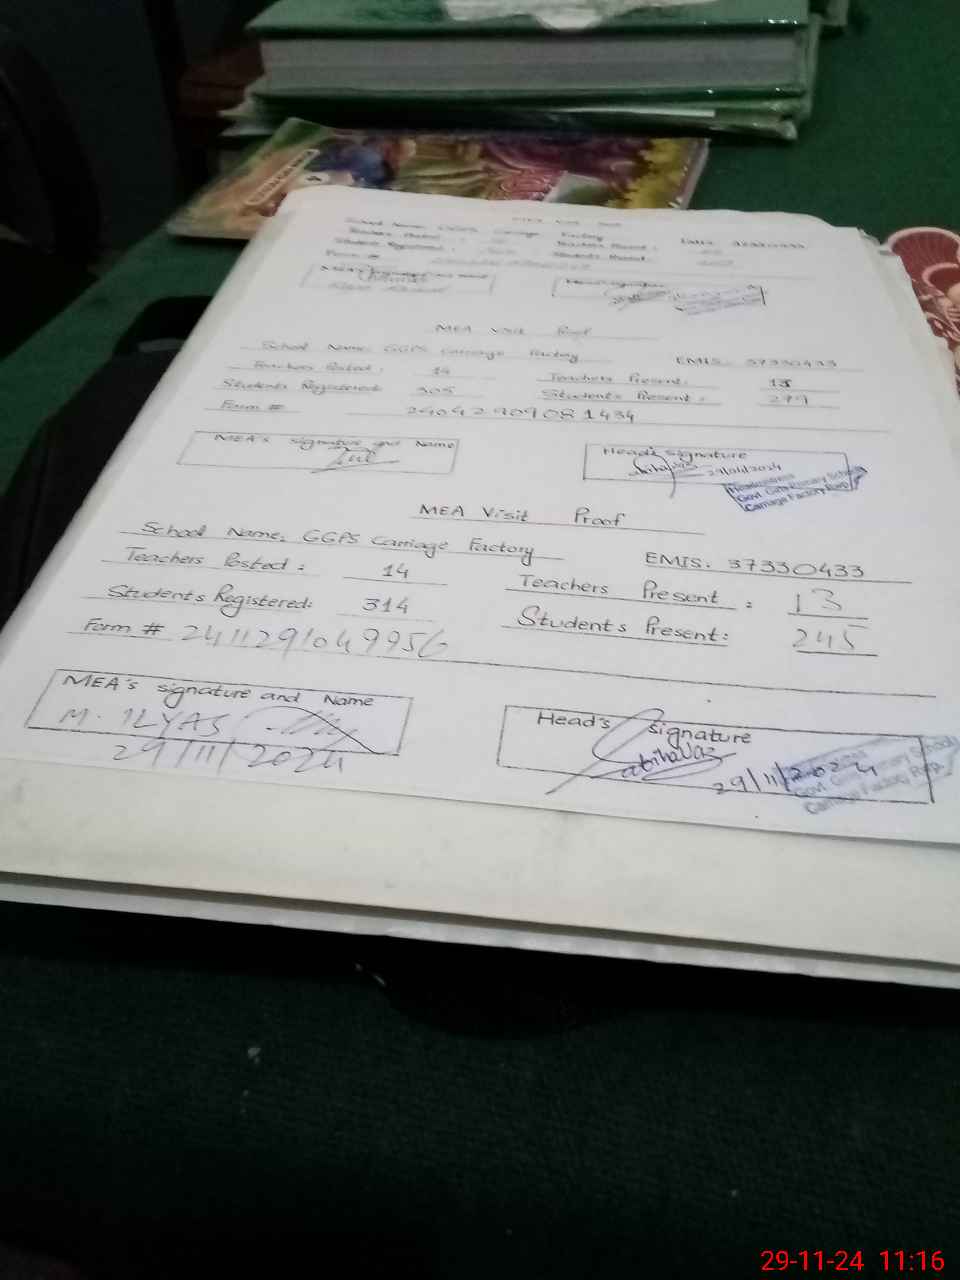 School Name: GGPS Carriage Factory
Teachers Posted :
Teachers Present :
Students Registered
Students Present:
Form #
MEA Visit Proof
School Name: GGPS Carriage Factory EMIS. 37330433
Teachers Posted : 14 Teachers Present: 13
Students Registered: 305 Students Present : 279
Form # 24042909081434
MEA's signature and Name
Head's signature
29/04/2024
Headmistress
Govt. Girls Primary School
Carriage Factory Rwp
MEA Visit Proof
School Name: GGPS Carriage Factory EMIS. 37330433
Teachers Posted : 14 Teachers Present : 13
Students Registered: 314 Students Present: 245
Form # 2411291049956
MEA's signature and Name
M. ILYAS
29/11/2024
Head's signature
29/11/2024
Govt. Girls Primary School
Carriage Factory Rwp
29-11-24 11:16